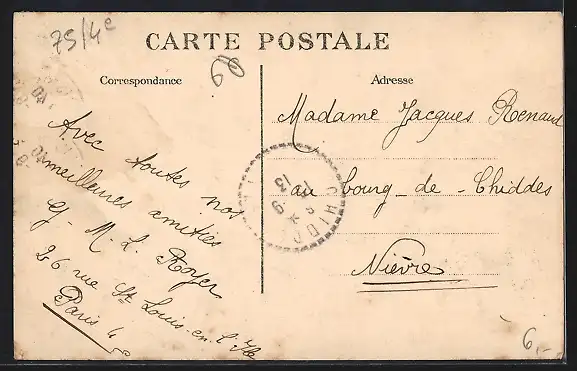 75/4e
CARTE POSTALE
60
Correspondance
Adresse
Avec toutes nos
meilleures amitiés
G M. L. Royer
26 rue St Louis-en-l'Ile
Paris 4e
Madame Jacques Renaud
au bourg-de-Chiddes
Nièvre
CHIDD
6,-